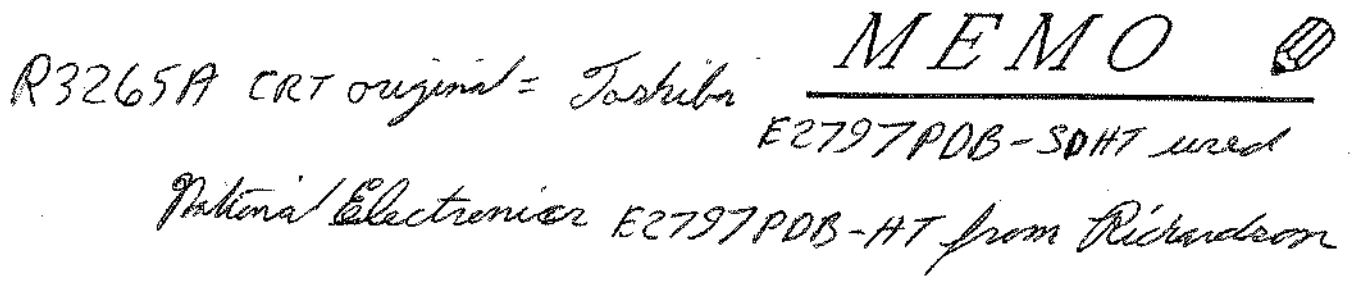 MEMO
R3265A CRT original = Toshiba
E2797PDB-SDHT used
National Electronics E2797PDB-HT from Richardson